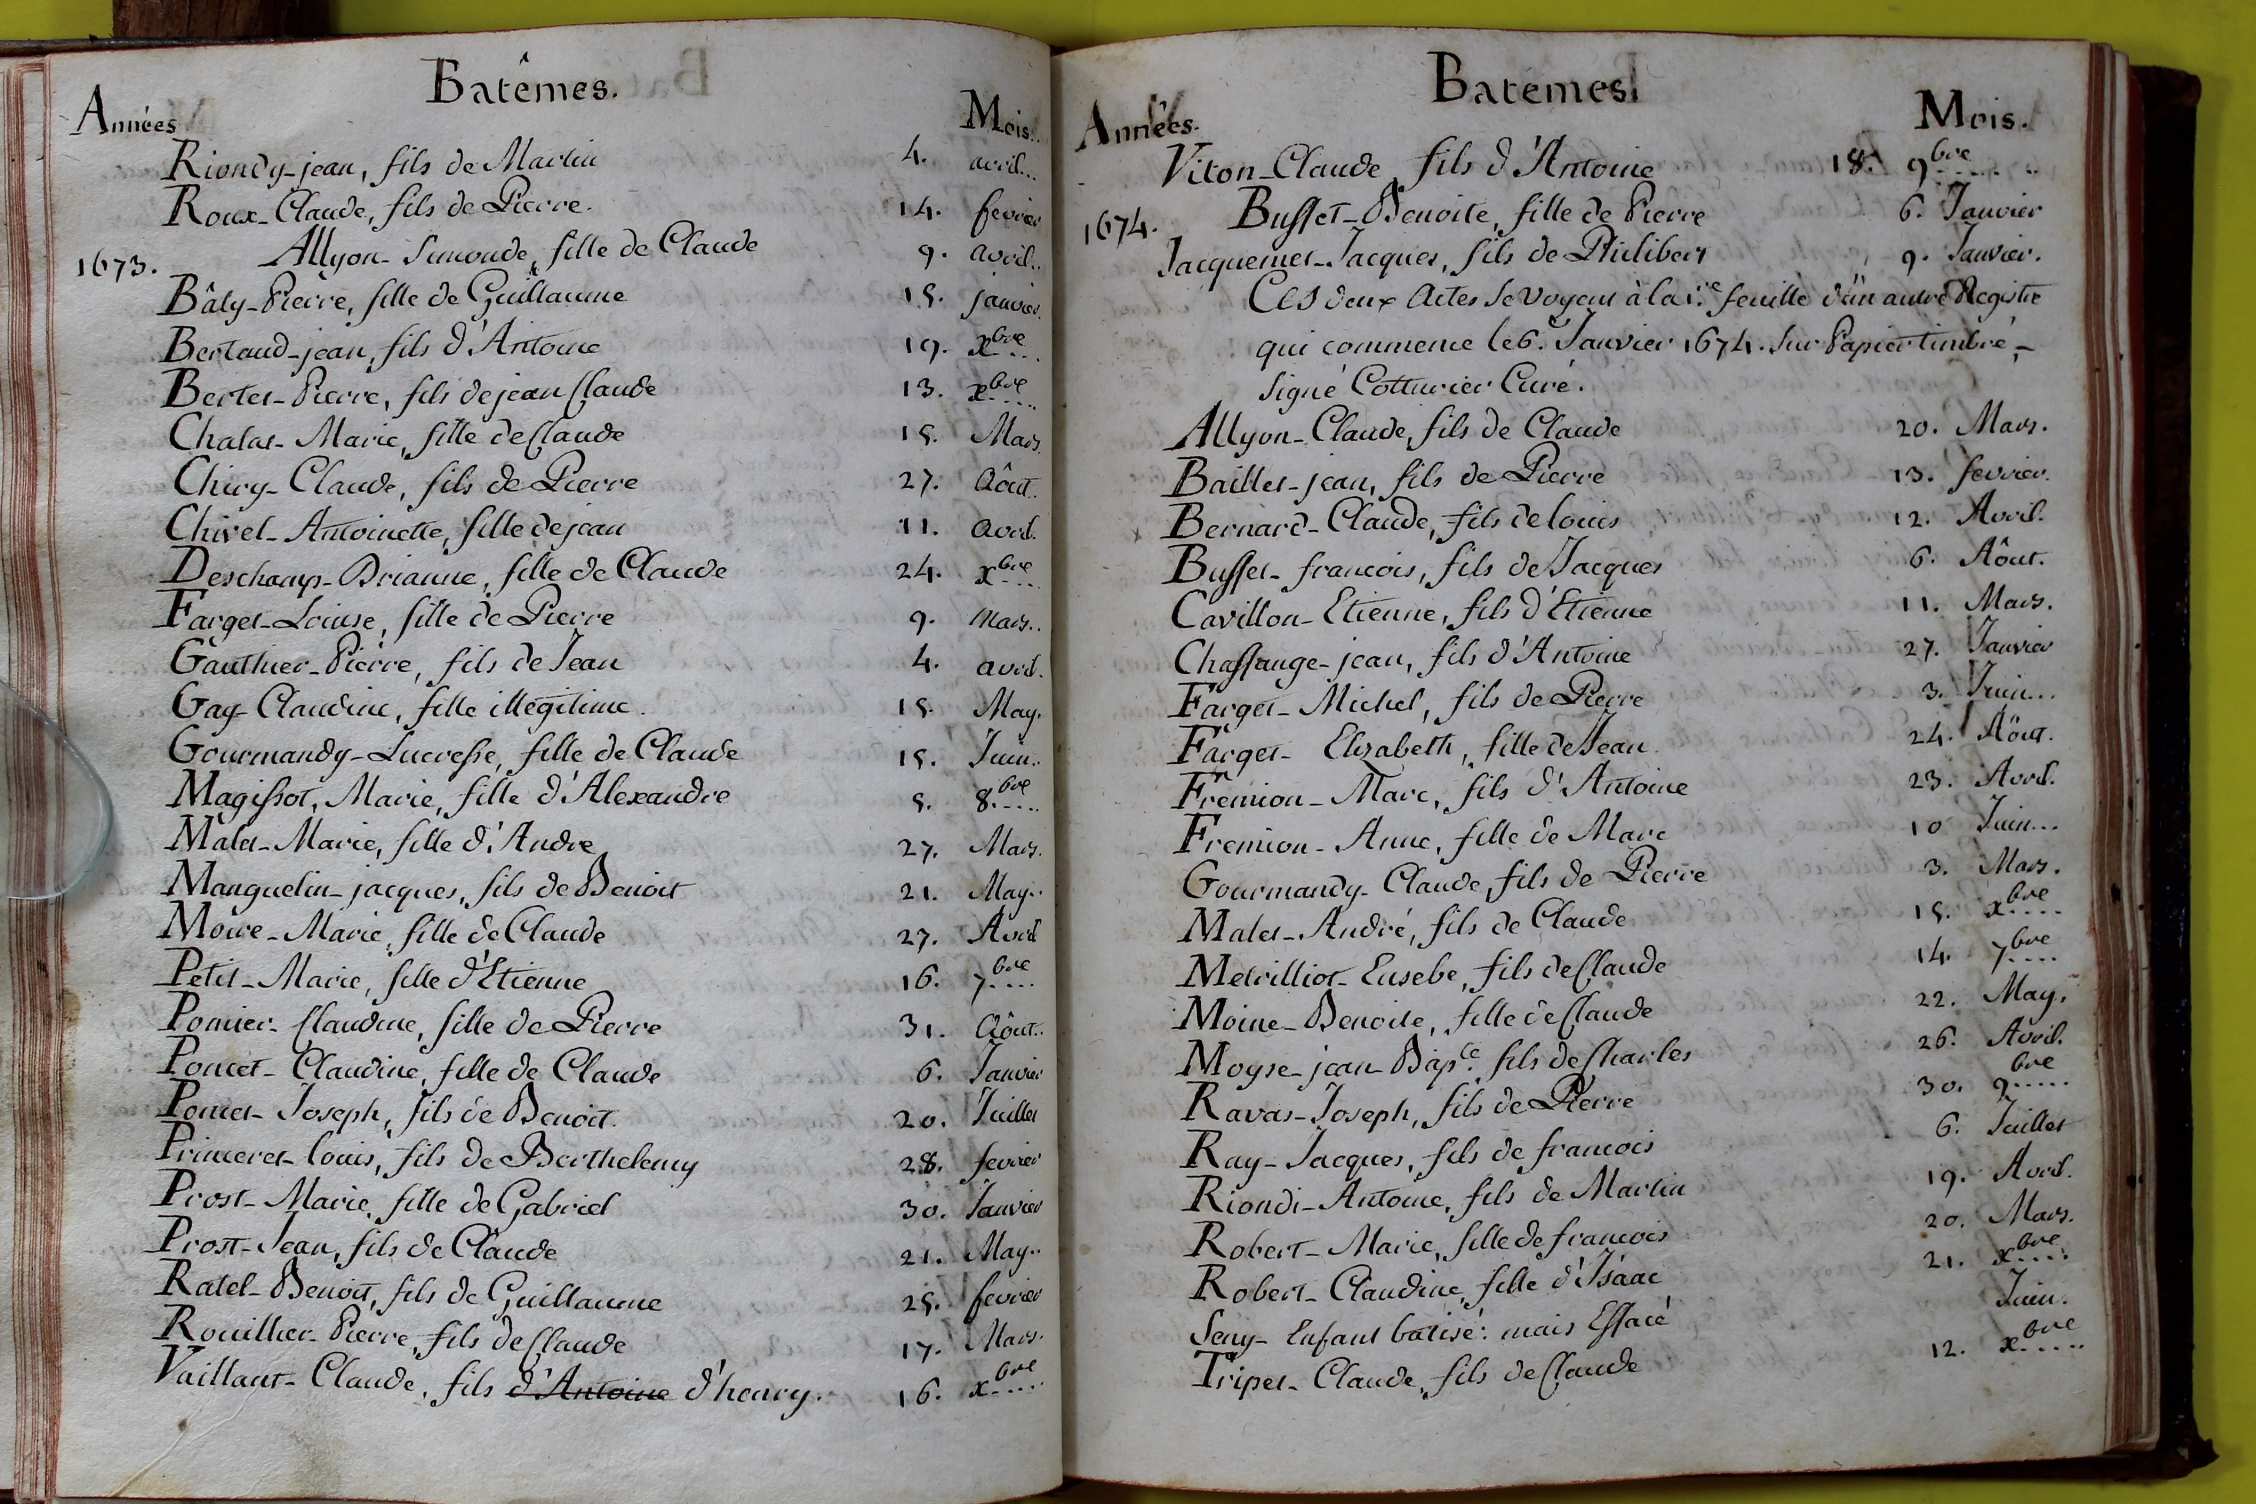 Batêmes.
Années Mois.
Riondy-jean, fils de Martin 4. avril...
Roux-Claude, fils de Pierre. 14. fevrier
1673. Allyon-Simonde, fille de Claude 9. avril..
Bâly-Pierre, fille de Guillaume 15. janvier.
Bertaud-jean, fils d'Antoine 19. xbre...
Bertet-Pierre, fils de jean Claude 13. xbre....
Chalat-Marie, fille de Claude 15. Mars.
Chiry-Claude, fils de Pierre 27. Aôut.
Chivel-Antoinette, fille de jean 11. avril.
Deschamp-Brianne, fille de Claude 24. xbre...
Farget-Louise, fille de Pierre 9. Mars..
Gauthier-Pierre, fils de Jean 4. avril.
Gay-Claudine, fille illegitime. 15. May.
Gourmandy-Lucresse, fille de Claude 15. Juin..
Magissot, Marie, fille d'Alexandre 5. 8.bre....
Malet-Marie, fille d'Andre 27. Mars.
Manguelin-jacques, fils de Benoit 21. May..
Moîre-Marie, fille de Claude 27. Avril
Petit-Marie, fille d'Etienne 16. 7bre....
Pomier-Claudine, fille de Pierre 31. Aôut..
Poncet-Claudine, fille de Claude 6. Janvier
Poncet-Joseph, fils de Benoit. 20. Juillet
Primeret-louis, fils de Berthelemy 28. fevrier
Prost-Marie, fille de Gabriel 30. Janvier
Prost-Jean, fils de Claude 21. May..
Ratel-Benoit, fils de Guillaume 25. fevrier
Rouillier-Pierre, fils de Claude 17. Mars.
Vaillant-Claude, fils d'Antoine d'henry. 16. xbre....
Batemes
Années. Mois.
Viton-Claude, fils d'Antoine 18. 9bre......
1674. Busset-Benoite, fille de Pierre 6. Janvier
Jacquemet-Jacques, fils de Philibert 9. Janvier.
Ces deux Actes se voyent à la 1.re feuille d'un autre Registre
qui commence le 6.e Janvier 1674. sur Papier timbré,-
signé Cotturier Curé.
Allyon-Claude, fils de Claude 20. Mars.
Baillet-jean, fils de Pierre 13. fevrier.
Bernard-Claude, fils de louis 12. Avril.
Busset-francois, fils de Jacques 6. Aôut.
Cavillon-Etienne, fils d'Etienne 11. Mars.
Chassange-jean, fils d'Antoine 27. Janvier
Farget-Michel, fils de Pierre 3. Juin...
Farget-Elizabeth, fille de Jean 24. Aôut.
Fremion-Marc, fils d'Antoine 23. Avril.
Fremion-Anne, fille de Marc 10 Juin...
Gourmandy-Claude, fils de Pierre 3. Mars.
Malet-André, fils de Claude 15. xbre....
Metrilliot-Eusebe, fils de Claude 14. 7bre....
Moine-Benoite, fille de Claude 22. May.
Moyse-jean-Bap.te fils de Charles 26. Avril.
Ravat-Joseph, fils de Pierre 30. 9bre.....
Ray-Jacques, fils de francois 6. Juillet
Riondi-Antoine, fils de Martin 19. Avril.
Robert-Marie, fille de francois 20. Mars.
Robert-Claudine, fille d'Isaac 21. xbre....
Seny-Enfant batisé: mais Effacé Juin.
Tripet-Claude, fils de Claude 12. xbre.....